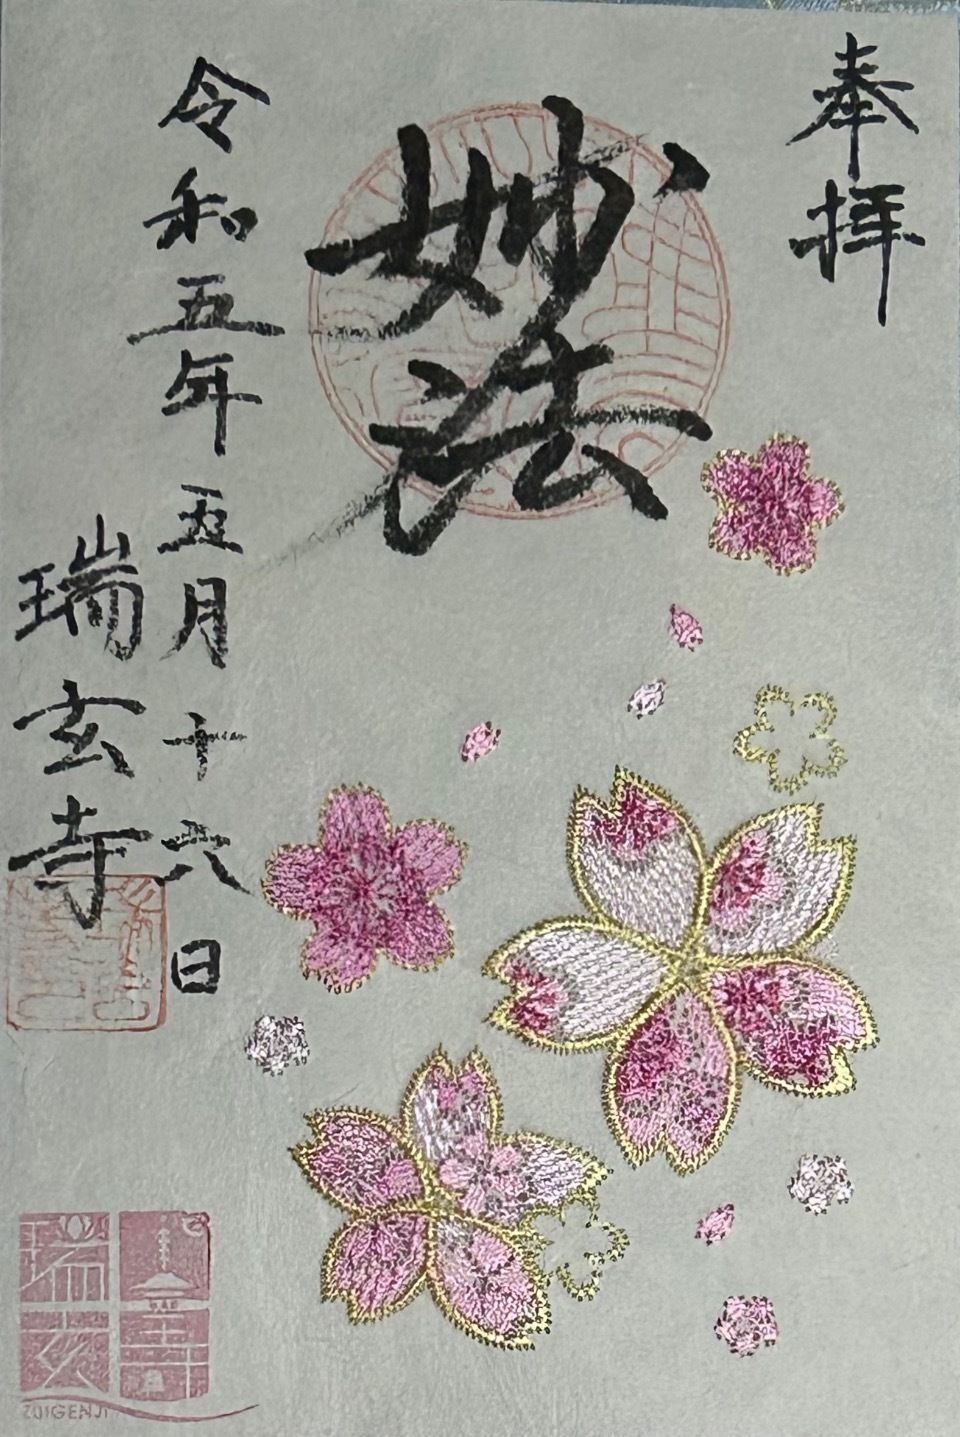 奉拝
妙法
令和五年五月十六日
瑞玄寺
瑞玄寺
ZUIGENJI